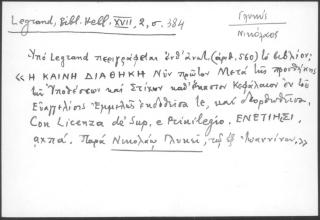 Legrand, Bibl. Hell. XVII, 2, σ. 384
Γλυκύς
Νικόλαος
Ὑπό Legrand περιγράφεται (ἀρ. 560) τό βιβλίον:
« Η ΚΑΙΝΗ ΔΙΑΘΗΚΗ Νῦν πρῶτον Μετά τῆς προσθήκης
τῶν Ὑποθέσεων καί Στίχων καθ' ἕκαστον Κεφάλαιον ἐν τοῖς
Εὐαγγελίοις Ἐμμελῶς ἐκδοθεῖσα τε, καί διορθωθεῖσα,
Con Licenza de' Sup. e Privilegio. ΕΝΕΤΙΗΣΙ,
αχπα. Παρά Νικολάῳ Γλυκεῖ, τῷ ἐξ Ἰωαννίνων. »